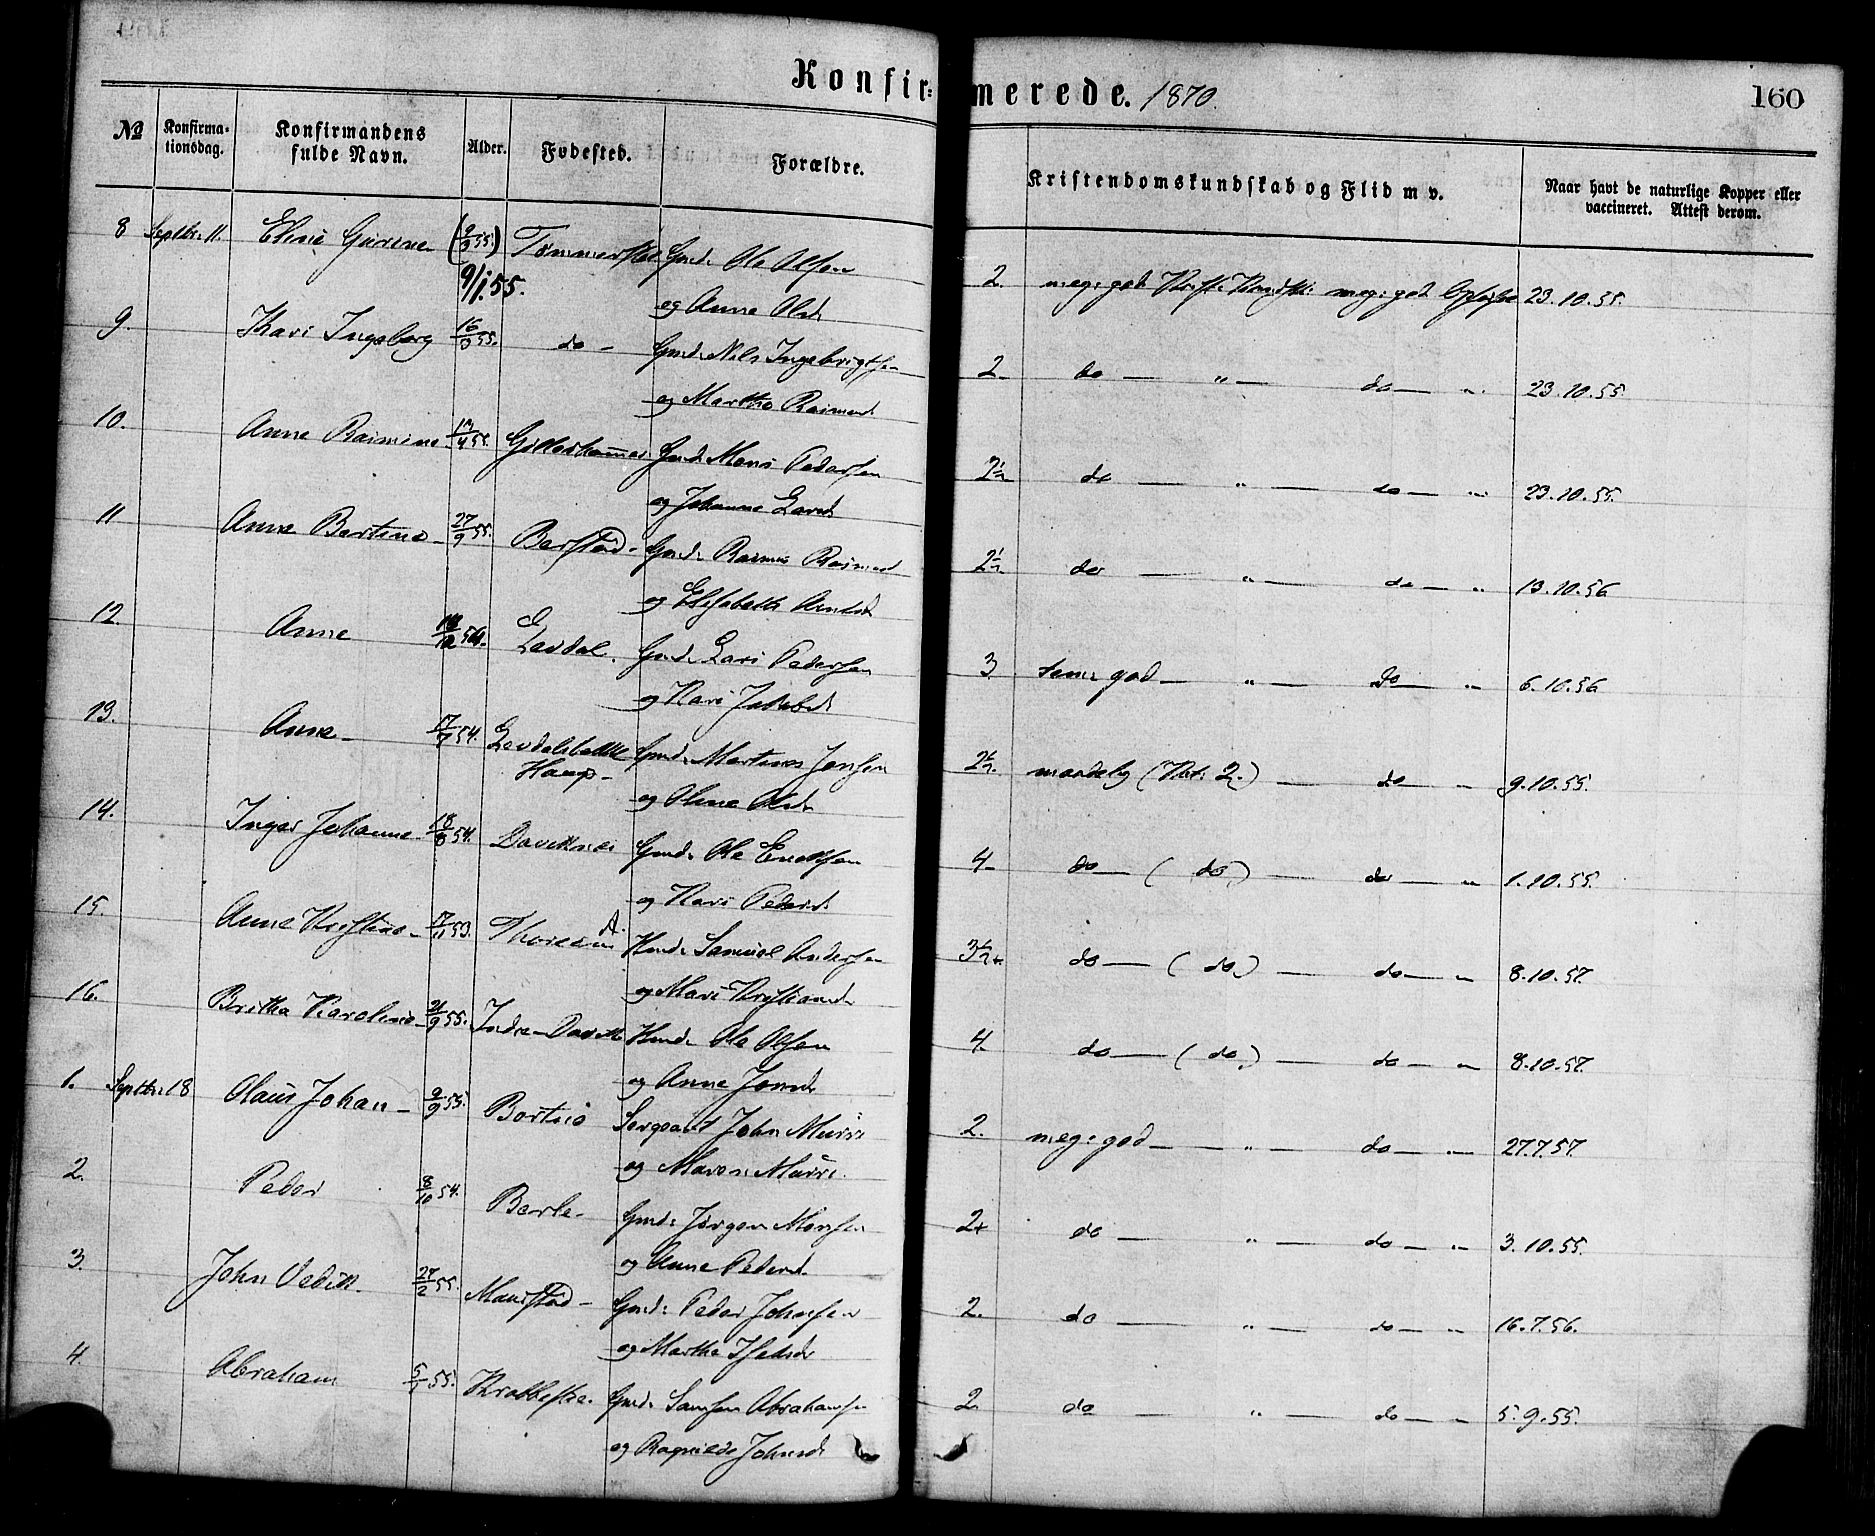 Konfirmerede. 1870. 160
№ Konfirmationsdag. Konfirmandens fulde Navn. Alder. Fødested. Forældre. Kristendomskundskab og Flid m v. Naar havt de naturlige Kopper eller vaccineret. Attest derom.
8 Septbr. 11. Eline Gurine (9/3 55.) Gmd: Ole Olsen 2. meg: god 23.10.55.
9/1. 55. og Anne Olsd
9. Kari Ingeborg 55. do - Gmd: Nils Ingebrigtsen 2. do — " — do — " 23.10.55
og Martha Rasmusd
10. Anne Rasmine Gmd: Mons Pedersen 2½ do — " — do — " 23.10.55.
og Johanne Larsd
11 Anne Bertine - 27/9 55. Berstad - Gmd: Rasmus Rasmus 2½ do — " — do — " 13.10.56
og Elisabeth
12 Anne Levdal. Gmd: Lars Pedersen 3 tem: god — " — do — " 6.10.56
og Kari Jakobsd
13. Anne - 54. Levdalsbakke Gmd: Martinus Jensen 2½. maadelig ( 2.) — do — " 9.10.55.
Haugs- og Oline Olsd
14. Inger Johanne - 18/8 54. Daviknes Gmd: Ole 4. do — ( do ) — do — " 1.10.55.
og Kari Pedersd
15. Anne Kristine - 17/11 53. Hmd: Samuel Andersen do — ( do ) — do — " 8.10.57.
og Mari Kristiansd
16. Britha Karoline - 55. Indre-Davik Hmd: Ole Olsen 4. do — ( do ) — do — " 8.10.57.
og Anne Jonsd
1. Septbr. 18 Olaus Johan - 9/9 55. Bortne Sergeant John Muri 2. meg: god — " — do — " 27.7.57.
og Maren Muri.
2. Peder 8/10 54. Berle - Gmd: Jørgen Monsen 2+ do — " — do — " 3.10.55.
og Anne Pedersd.
3. John Vedik. 27/2 55. Maurstad - Gmd: Peder Johnsen 2. do — " — do — " 16.7.56.
og Martha
4. Abraham 5/1 55. Krabbestie. Gmd: Samson Abrahamsen 2 do — " — do — " 5.9.55.
og Ragnilde Johnsd